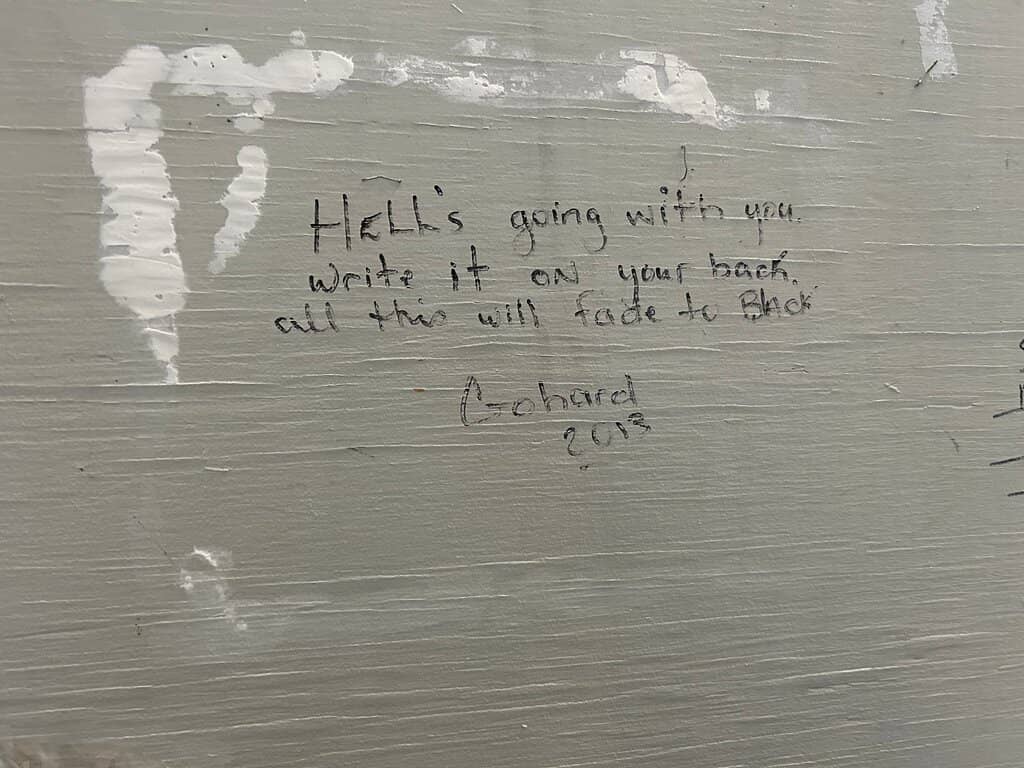 HELL's going with you.
write it oN your back.
all this will fade to Black
Gohard
2013